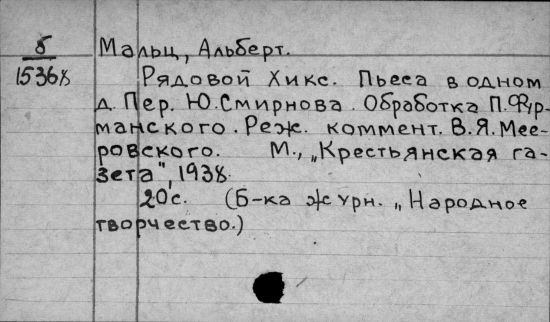 б
15368
Мальц, Альберт.
Рядовой Хикс. Пьеса в одном
д. Пер. Ю. Смирнова. Обработка П. Фур-
манского. Реж. коммент. В. Я. Мее-
ровского. М., „Крестьянская га-
зета", 1938.
20 с. (Б-ка журн. „Народное
творчество.)